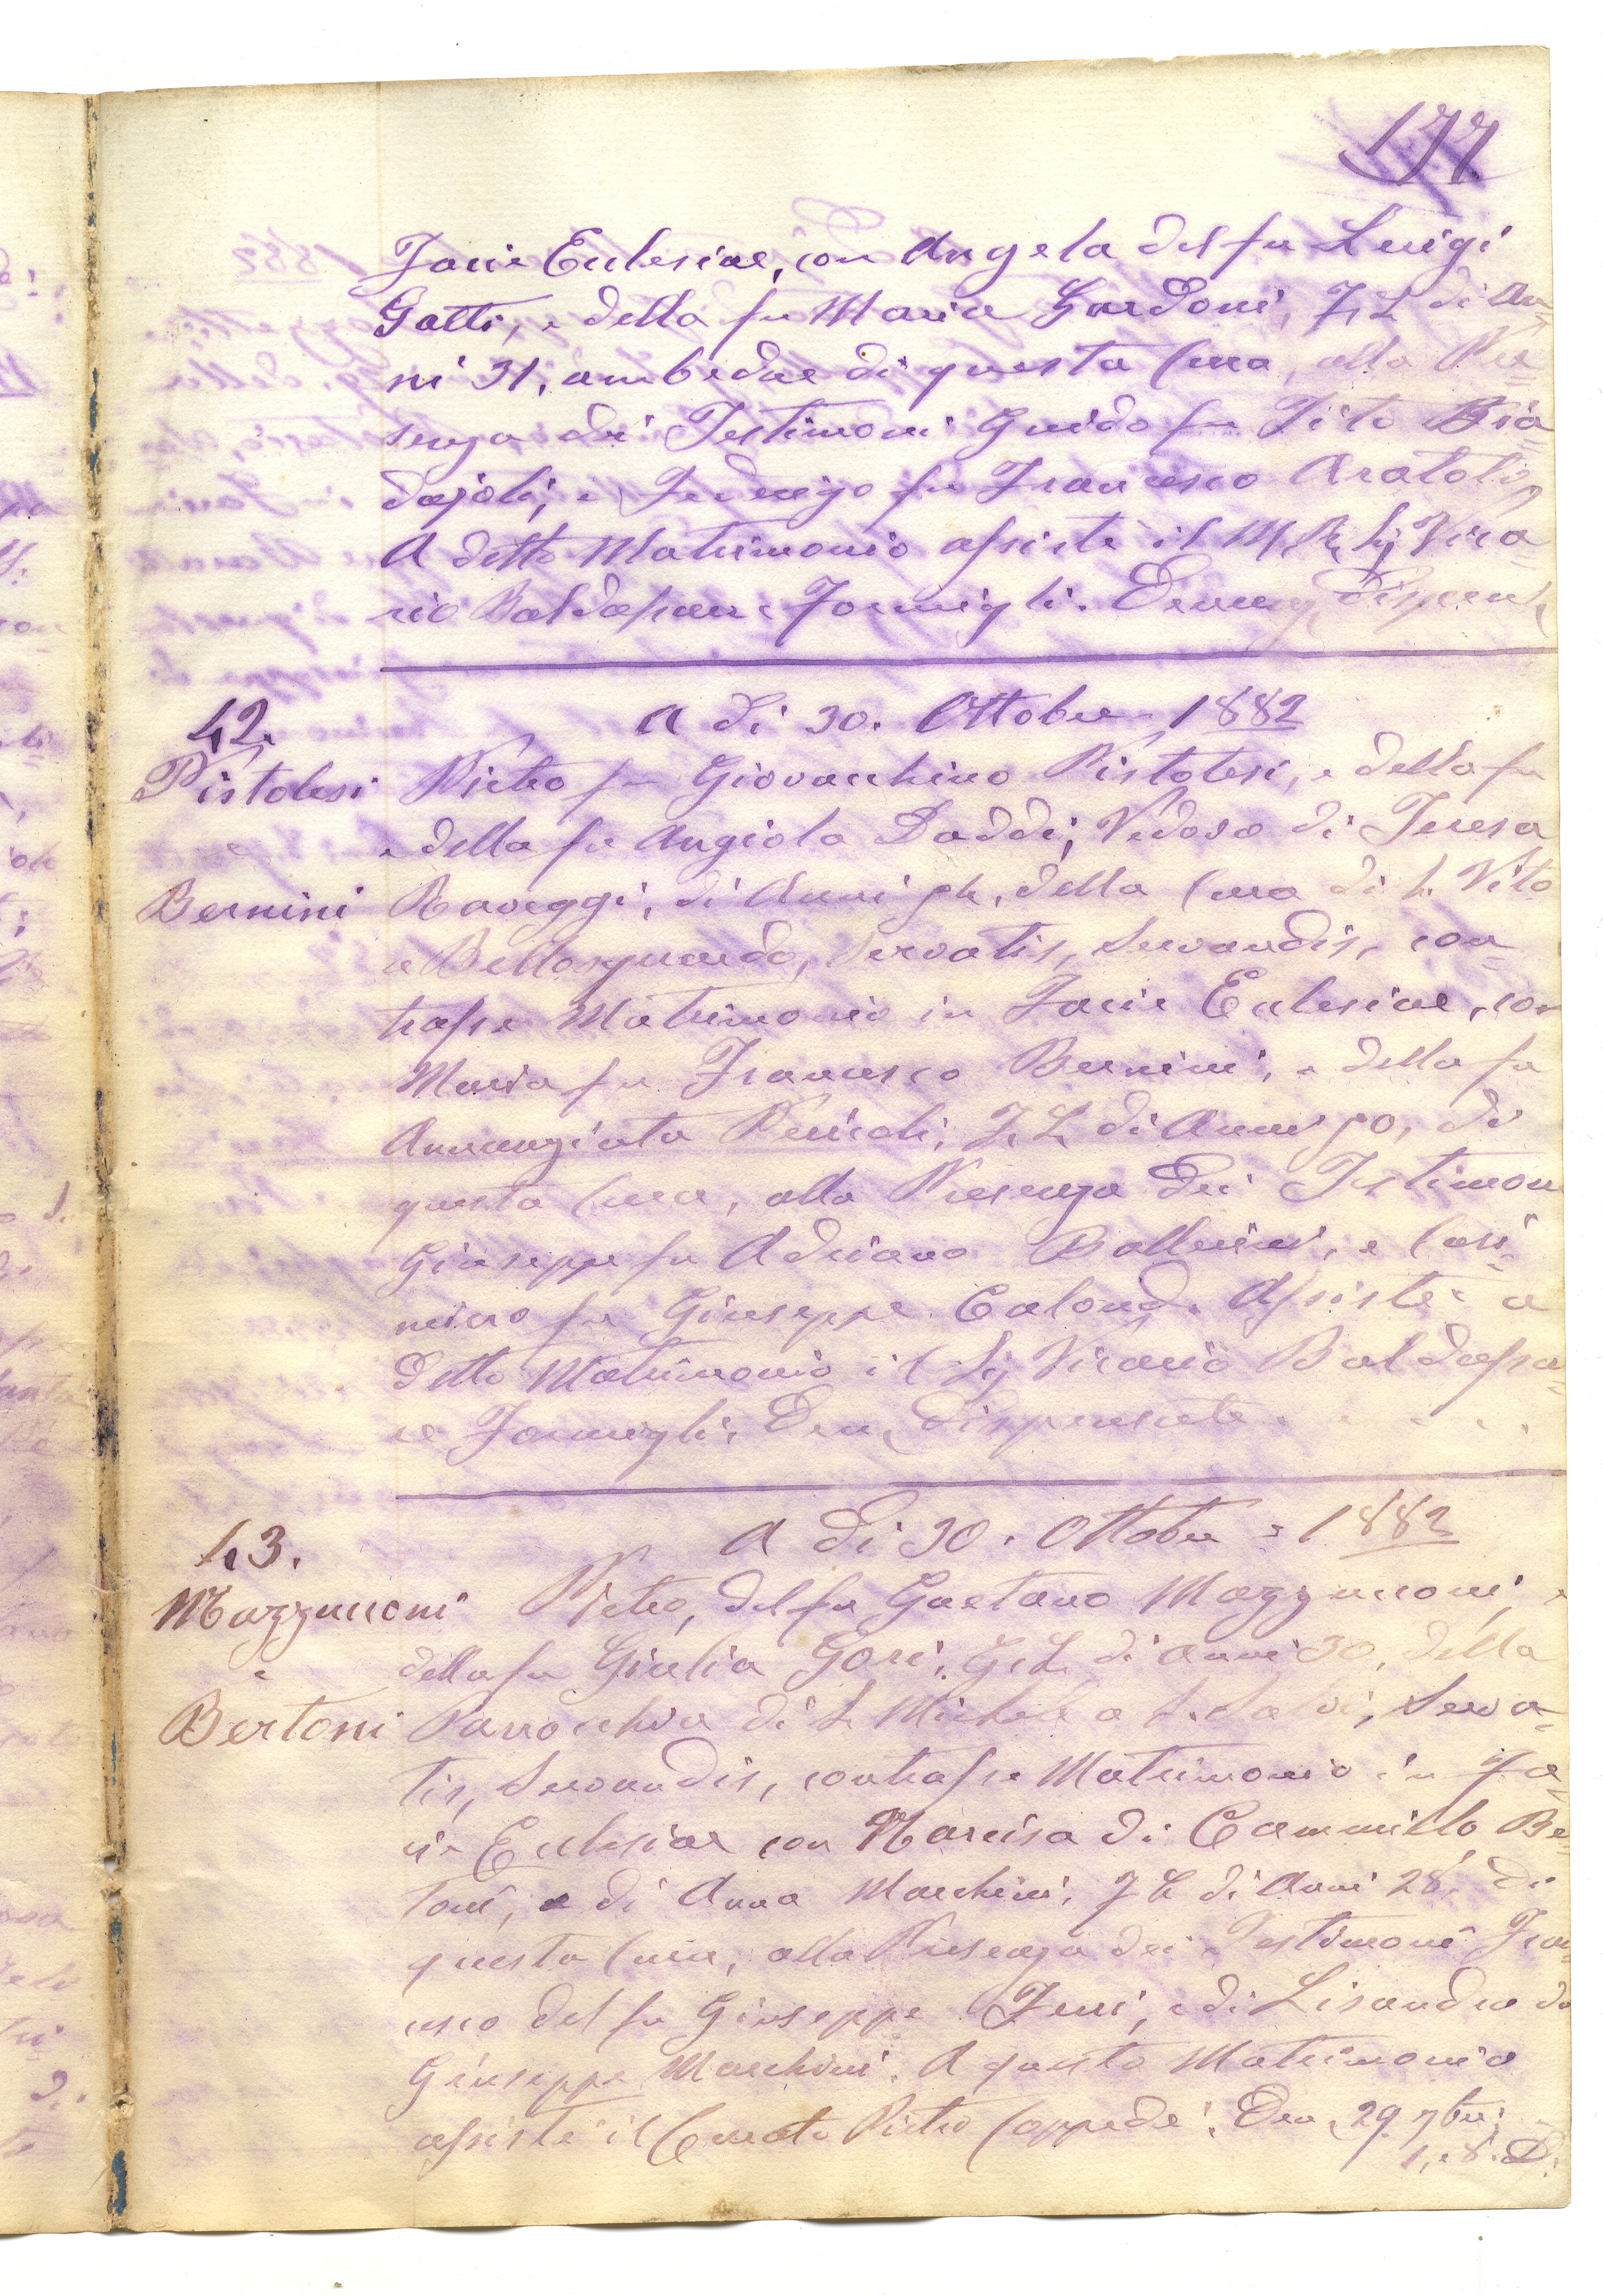 177
Facie Eclesiae, con Angela del fu Luigi
Gatti, e della fu Maria Gardoni, F. L. di An=
ni 31, ambedue di questa Cura, alla Pre=
senza dei Testimoni Guido fu Tito Bia=
dajoli, e Federigo fu Francesco
A detto Matrimonio assistè il M. R. Sig Vica=
rio Baldassarre Formigli. Denunz, Dispens,
42.
A di 30. Ottobre 1882
Pistolesi
e
Bernini
Pietro fu Giovacchino Pistolesi, e della fu
e della fu Angiola Daddi, Vedovo di Teresa
Raveggi, di Anni della Cura di S. Vito
a Bellosguardo, Servatis, Servandis, con=
trasse Matrimonio in Facie Eclesiae, con
Maria fu Francesco Bernini, e della fu
Annunziata F. L. di Anni 50, di
questa Cura, alla Presenza dei Testimoni
Giuseppe fu Adriano Ballerini, e Casi=
miro fu Giuseppe Assistè a
detto Matrimonio il Sig Vicario Baldassa=
re Formigli. Den, Dispensate
43.
A di 30. Ottobre = 1882
Mazzuconi
e
Bertoni
Pietro, del fu Gaetano Mazzuconi, e
della fu Giulia Gori, G. L. di Anni 30, della
Parrocchia di S. Michele a S. Salvi, Serva=
tis, Servandis, contrasse Matrimonio in Fa=
cie Eclesiae con Narcisa di Cammillo Be=
toni, e di Anna Marchini, F. L. di Anni 28, di
questa Cura, alla Presenza dei Testimoni Fran=
cesco del fu Giuseppe Ferri, e di Lisandro di
Giuseppe Marchini. A questo Matrimonio
assistè il Curato Pietro Cappedè. Den, 29. 7bre;
1, e 8. D.